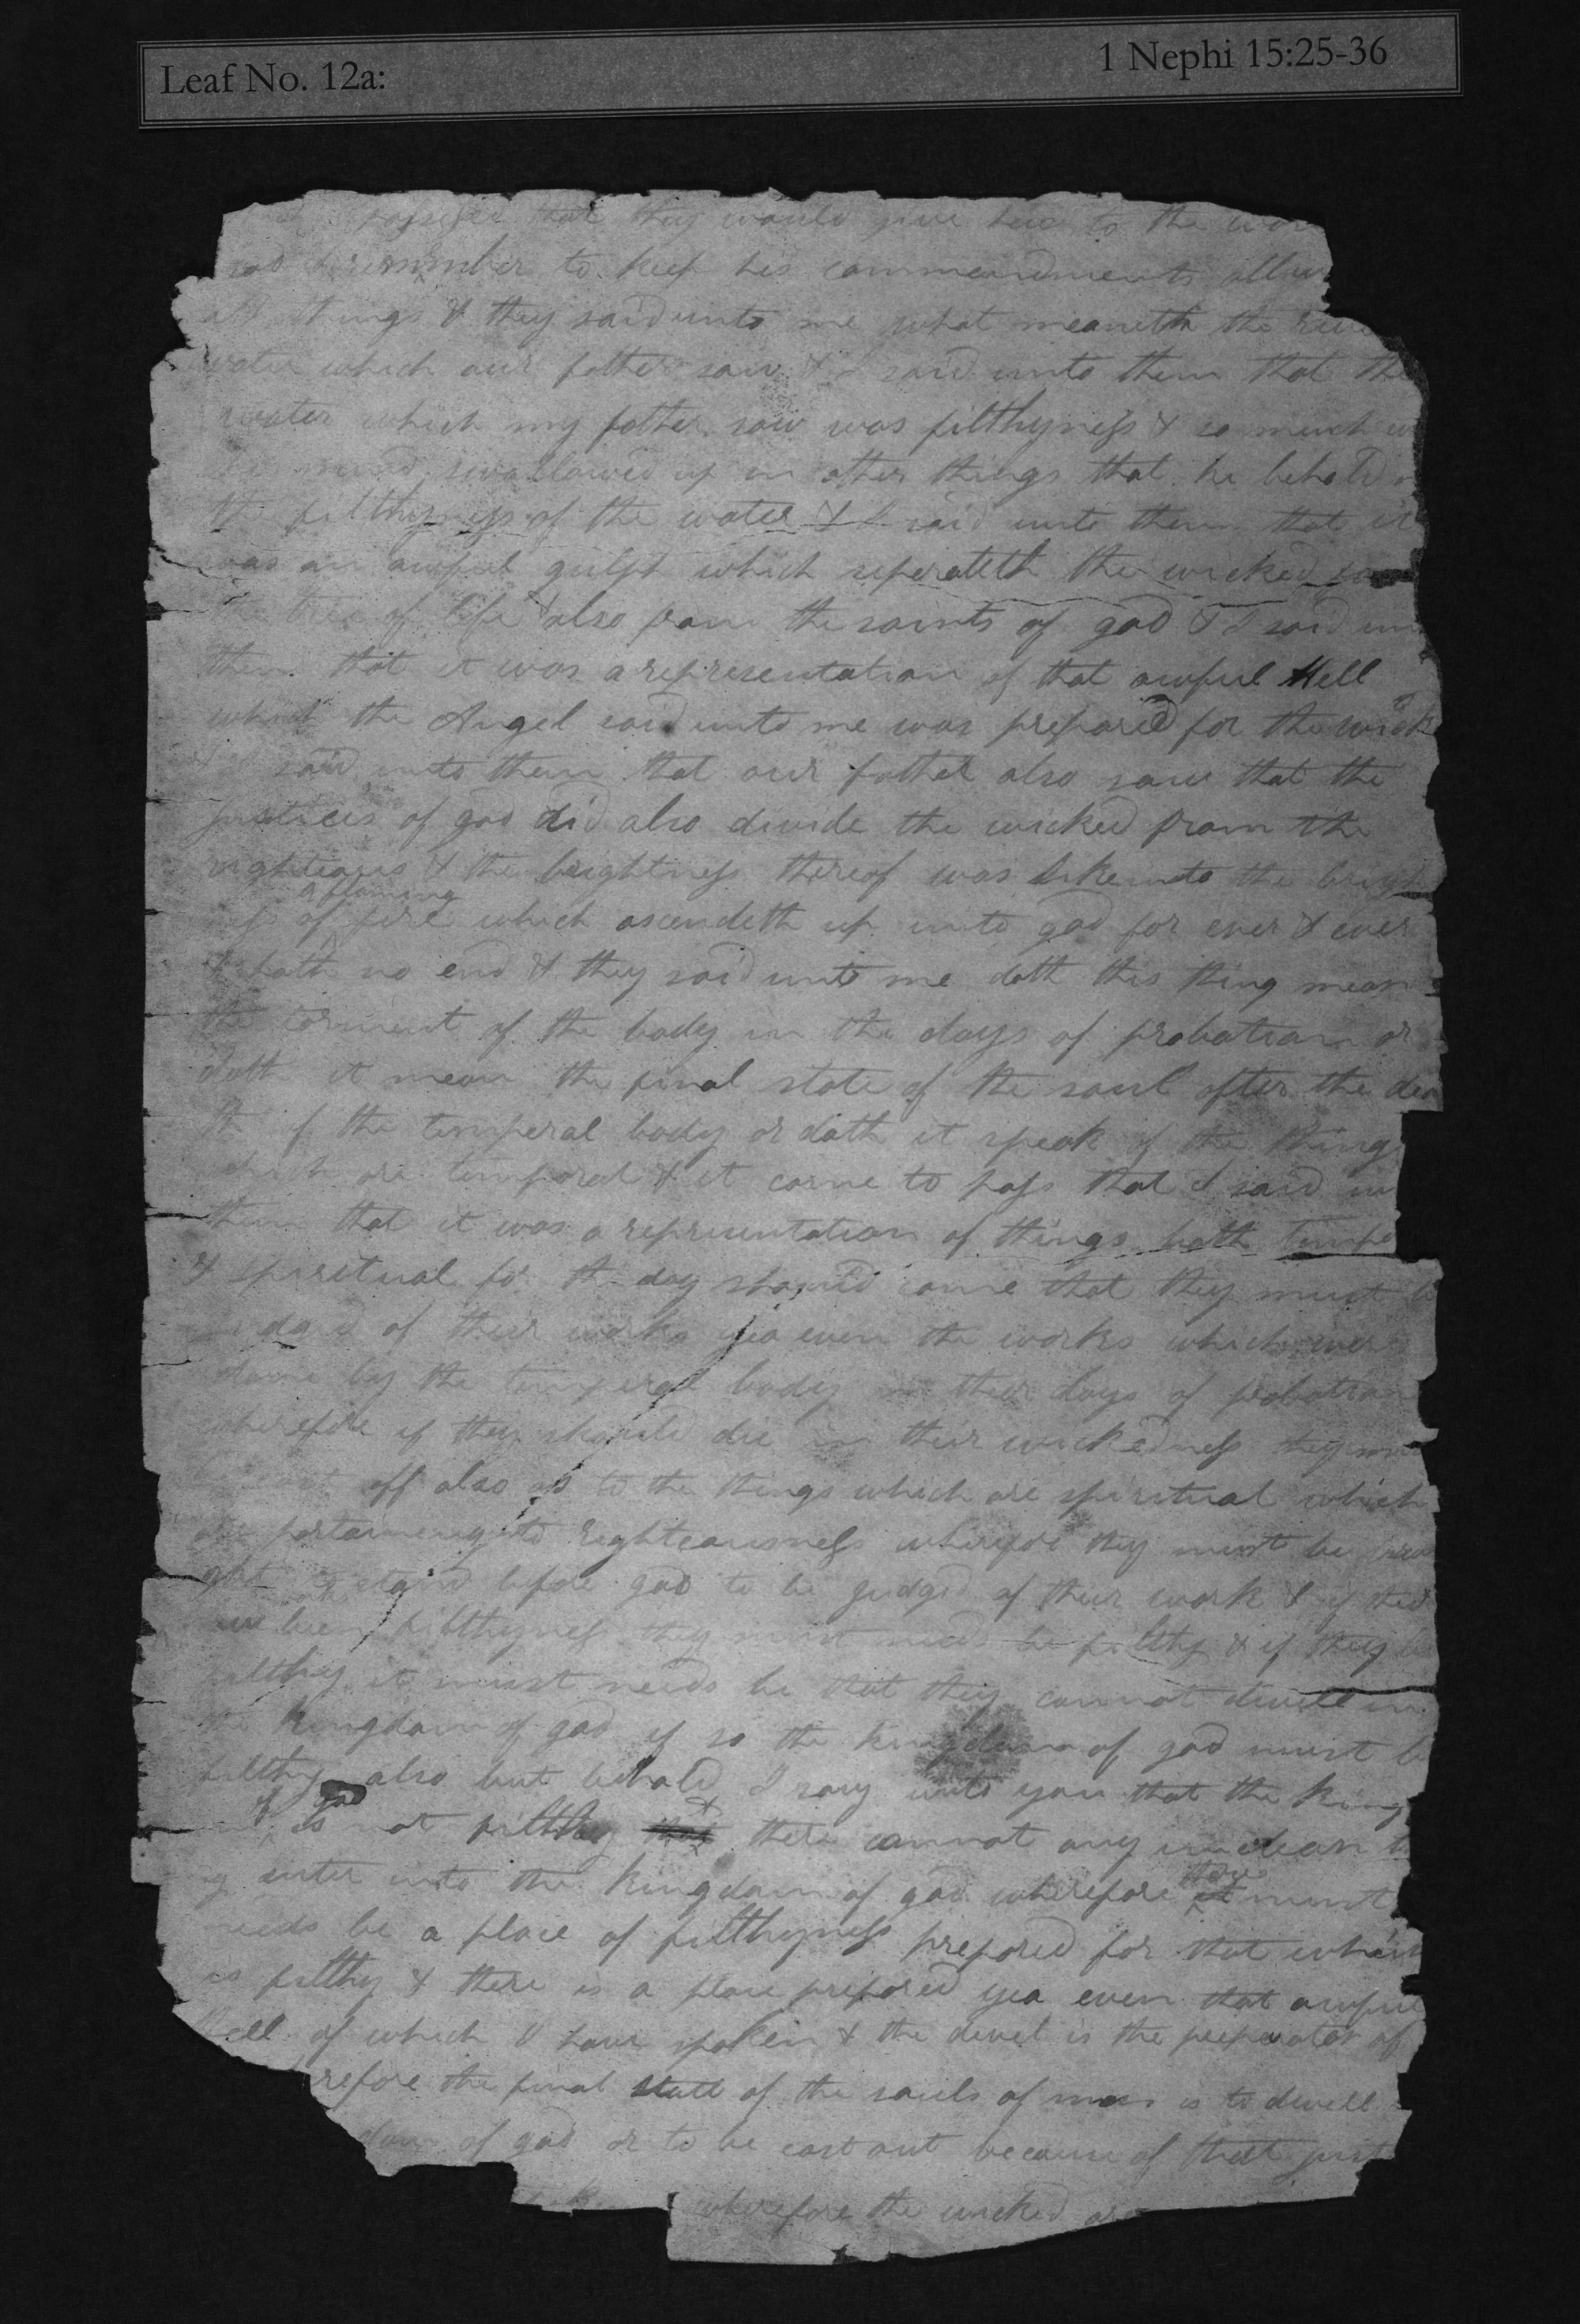 Leaf No. 12a: 1 Nephi 15:25-36
that they would give heed to the
god & remember to keep his commandments allways
all things & they said unto me what meaneth the
water which our father saw & I said unto them that the
water which my father saw was filthyness & so much
mind swallowed up in other things that he beheld
the filthyness of the water & I said unto them that it
was an awful gulph which seperateth the wicked from
the tree of life & also from the saints of god & I said un
them that it was a representation of that awful Hell
which the Angel said unto me was prepared for the wick
& I said unto them that our father also saw that the
justices of god did also divide the wicked from the
righteous & the brightness thereof was like unto the bright
ness of a flaming fire which ascendeth up unto god for ever & ever
& hath no end & they said unto me doth this thing mean
the torment of the body in the days of probation or
doth it mean the final state of the soul after the dea
th of the temperal body or doth it speak of the things
which are temporal & it came to pass that I said un
them that it was a representation of things both tempe
& spiritual for the day should come that they must b
judged of their works yea even the works which were
done by the temperal body in their days of probation
wherefore if they should die in their wickedness they mu
cast off also as to the things which are spiritual which
are pertaining to righteousness wherefore they must be brou
ght to stand before god to be judgd of their work & if their
been filthyness they must needs be filthy & if they be
filthy it must needs be that they cannot dwell in
the kingdom of god if so the kingdom of god must be
filthy also but behold I say unto you that the king
of god is not filthy & there cannot any unclean th
g enter into the kingdom of god wherefore there must
needs be a place of filthyness prepared for that which
is filthy & there is a place prepared yea even that awful
Hell of which I have spoken & the devil is the preparator of
refore the final state of the souls of men is to dwell
dom of god or to be cast out because of that just
wherefore the wicked are